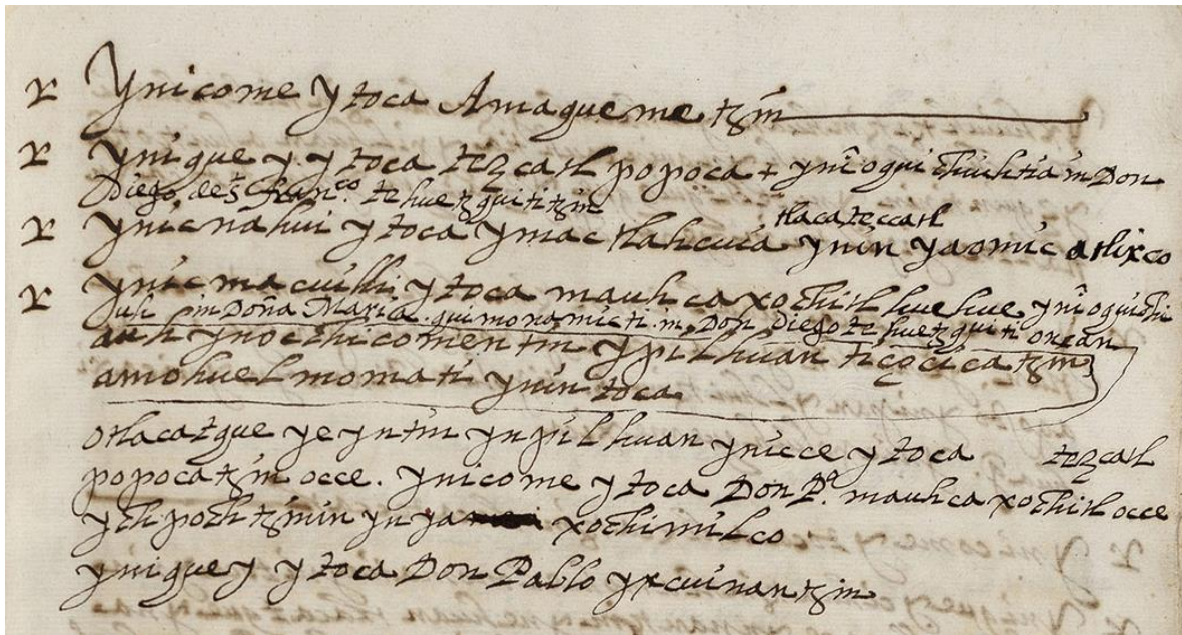 Ynicome ytoca Amaquemetzin
yniquey. ytoca tezcatl popoca + ynî oquichiuhtia in Don
Diego de S. Franco. tehuetzquititzin
tlacateccatl
ynic nahui ytoca ymactlahcuia ynin yaomic atlixco
ynic macuilli ytoca mauhcaxochitl huehue ynî oquichi
uh in Doña Maria. quimonamicti. in, Don Diego tehuetzquiti oncan
auh ynochicomentin ypilhuan tiçoçicatzin
amo huel momati ynin toca
otlacatque yeyntin ynpilhuan ynicce ytoca tezcatl
popocatzin occe. ynicome ytoca Don Po. mauhcaxochitl occe
ychpochtzin in ynya xochimilco
yniquey ytoca Don Pablo yxcuinantzin